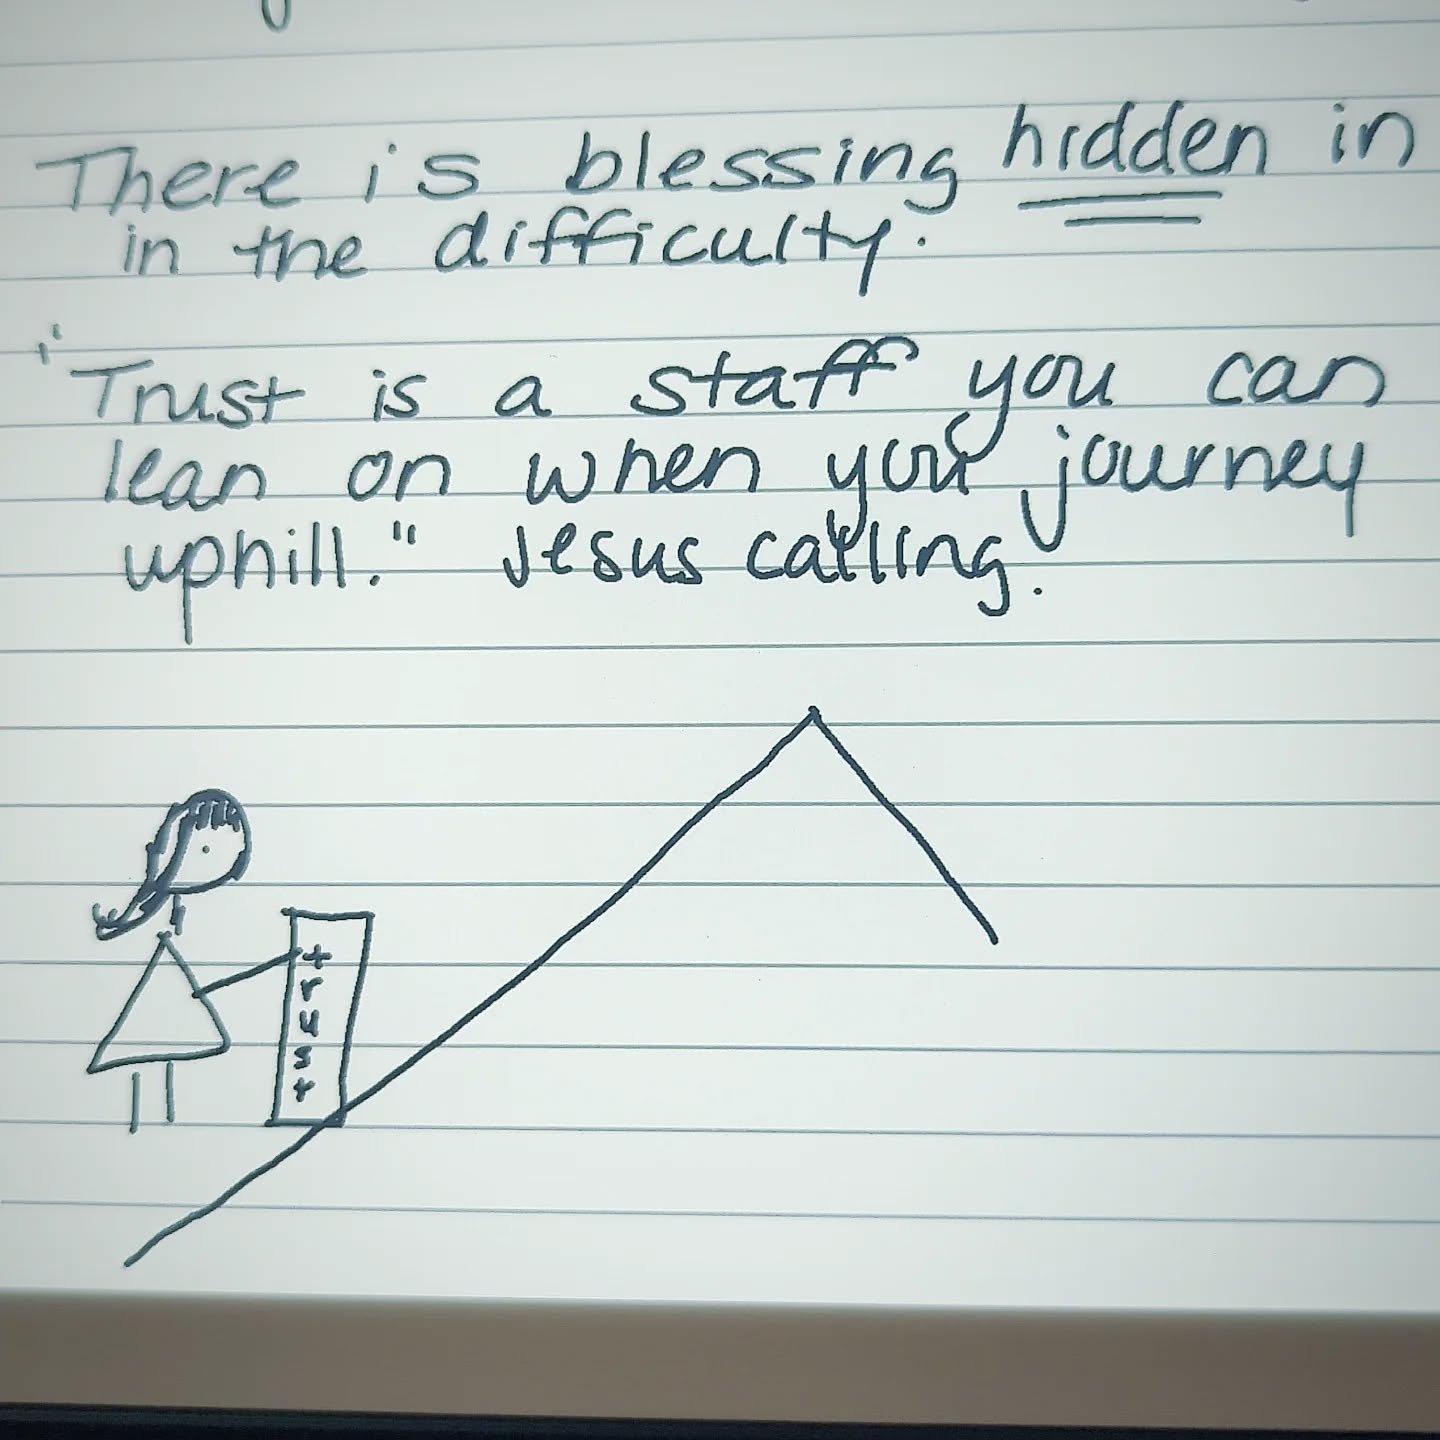 There is blessing hidden in
in the difficulty.
"Trust is a staff you can
lean on when you journey
uphill." Jesus calling.
trust